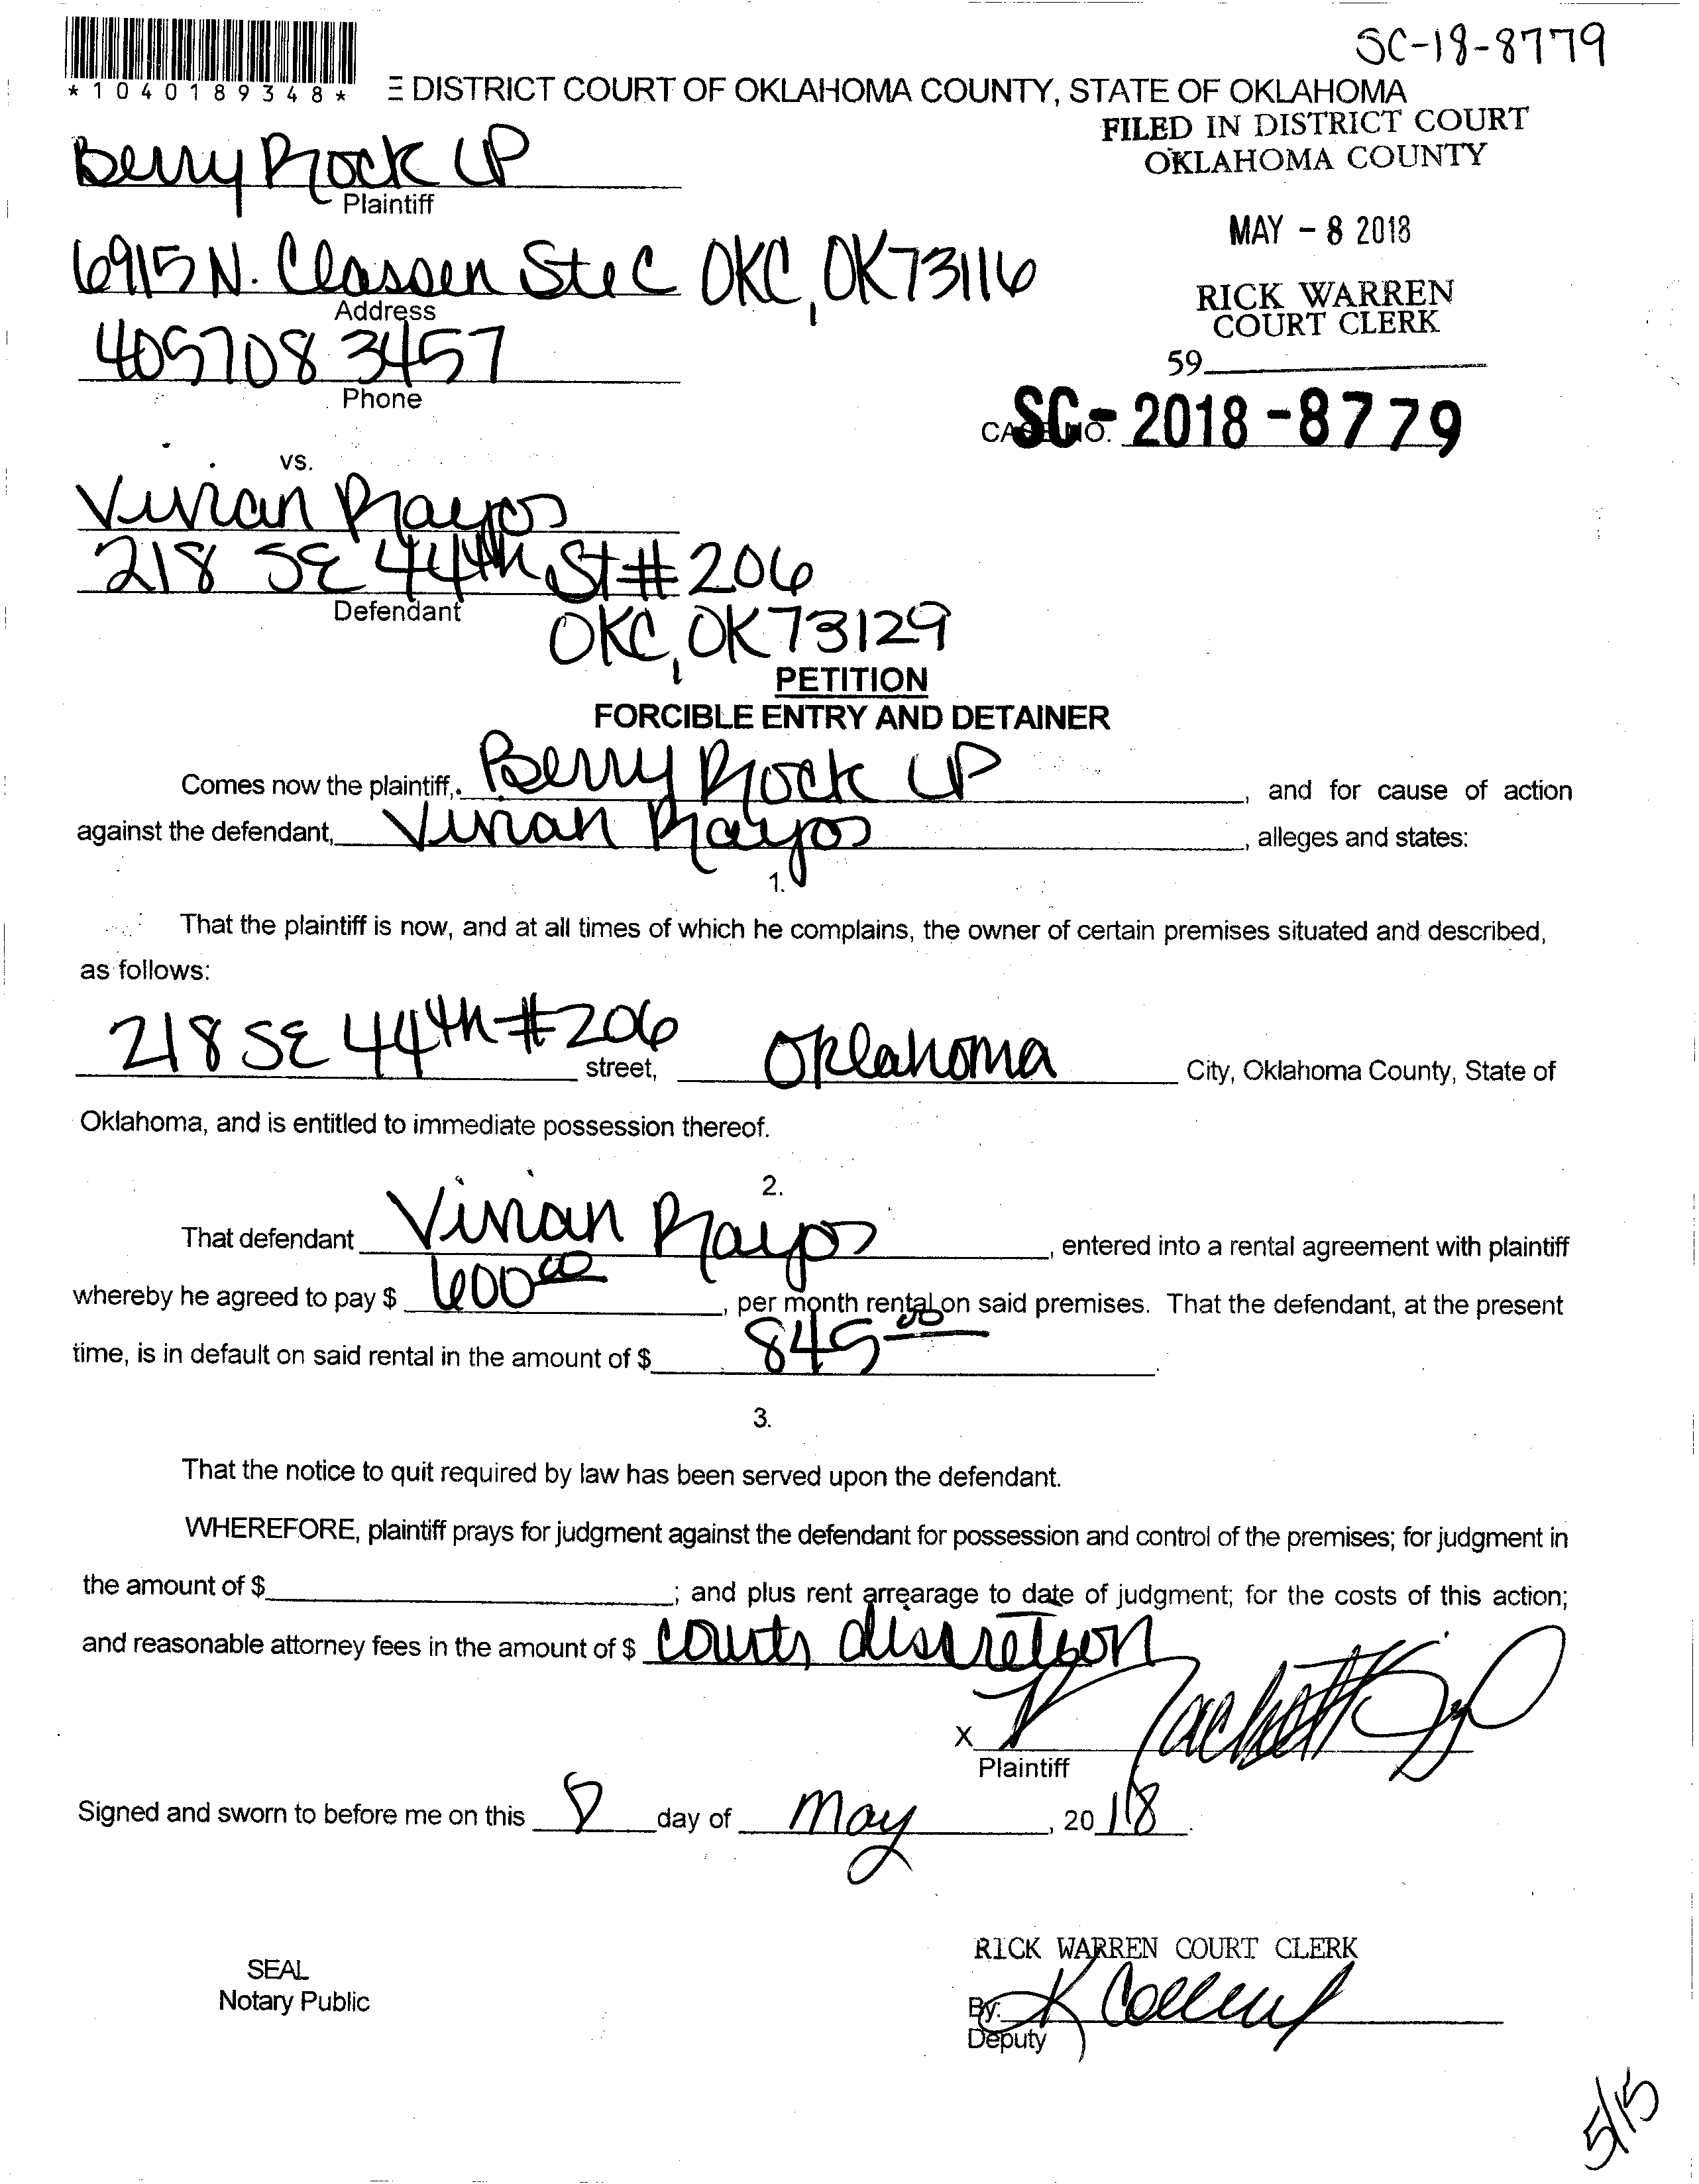 SC-18-8779
*1040189348*
E DISTRICT COURT OF OKLAHOMA COUNTY, STATE OF OKLAHOMA
FILED IN DISTRICT COURT
OKLAHOMA COUNTY
Berry Rock LP
Plaintiff
MAY - 8 2018
6915 N. Classen Ste C OKC, OK 73116
Address
RICK WARREN
COURT CLERK
405 708 3457
Phone
59
CASE NO. SC-2018-8779
vs.
Vivian Rayos
218 SE 44th St # 206
Defendant
OKC, OK 73129
PETITION
FORCIBLE ENTRY AND DETAINER
Comes now the plaintiff, Berry Rock LP, and for cause of action
against the defendant, Vivian Rayos, alleges and states:
1.
That the plaintiff is now, and at all times of which he complains, the owner of certain premises situated and described,
as follows:
218 SE 44th #206 street, Oklahoma City, Oklahoma County, State of
Oklahoma, and is entitled to immediate possession thereof.
2.
That defendant Vivian Rayos, entered into a rental agreement with plaintiff
whereby he agreed to pay $ 600.00, per month rental on said premises. That the defendant, at the present
time, is in default on said rental in the amount of $ 845.00.
3.
That the notice to quit required by law has been served upon the defendant.
WHEREFORE, plaintiff prays for judgment against the defendant for possession and control of the premises; for judgment in
the amount of $ ; and plus rent arrearage to date of judgment; for the costs of this action;
and reasonable attorney fees in the amount of $ courts discretion
X
Plaintiff
Signed and sworn to before me on this 8 day of May, 2018.
RICK WARREN COURT CLERK
SEAL
Notary Public
By:
Deputy
5/15